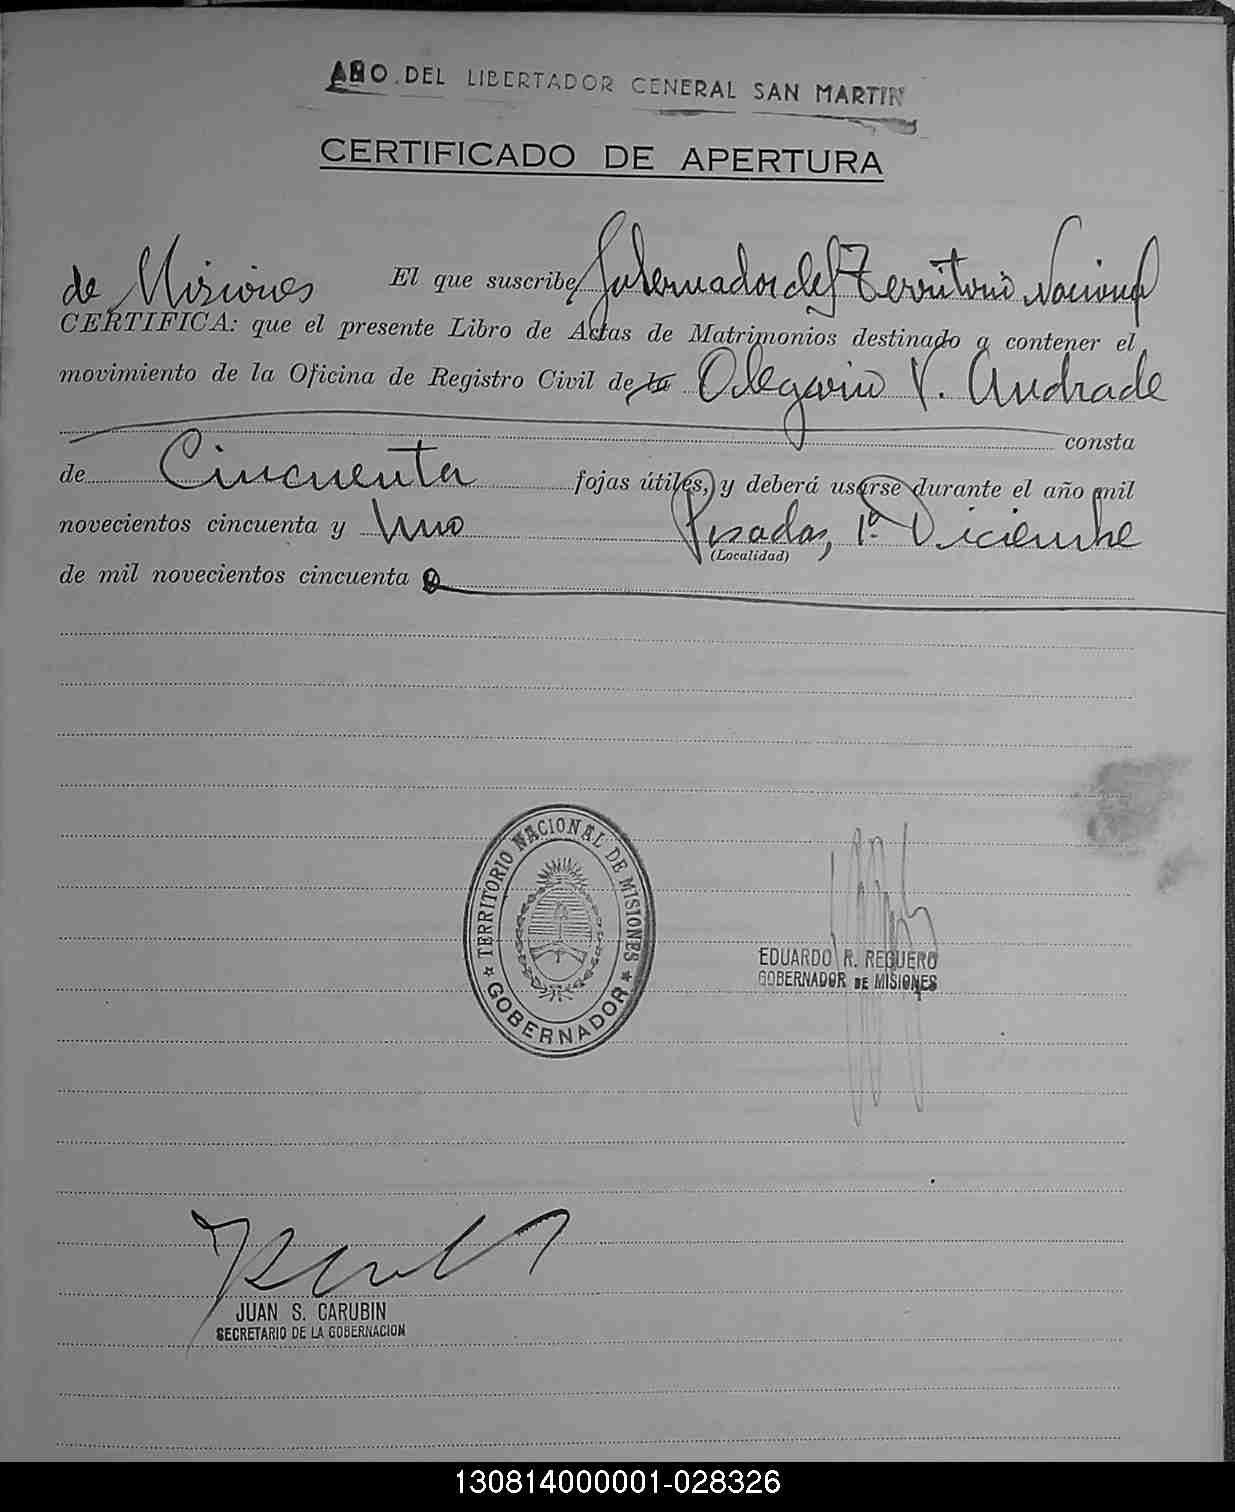 AÑO DEL LIBERTADOR GENERAL SAN MARTIN
CERTIFICADO DE APERTURA
El que suscribe, Gobernador del Territorio Nacional
de Misiones
CERTIFICA: que el presente Libro de Actas de Matrimonios destinado a contener el
movimiento de la Oficina de Registro Civil de la Olegario V. Andrade
consta
de Cincuenta fojas útiles, y deberá usarse durante el año mil
novecientos cincuenta y Uno Posadas, 1º Diciembre
(Localidad)
de mil novecientos cincuenta
TERRITORIO NACIONAL DE MISIONES
GOBERNADOR
EDUARDO R. REGUERO
GOBERNADOR DE MISIONES
JUAN S. CARUBIN
SECRETARIO DE LA GOBERNACION
130814000001-028326